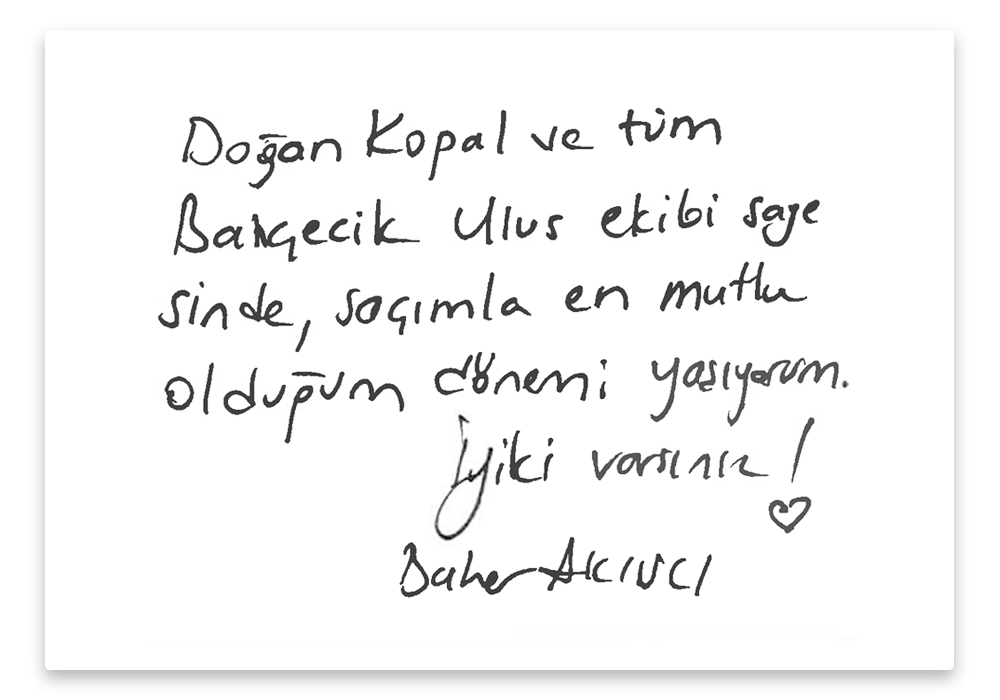 Doğan Kopal ve tüm
Bahçecik Ulus ekibi saye
sinde, saçımla en mutlu
olduğum dönemi yaşıyorum.
İyiki varsınız!